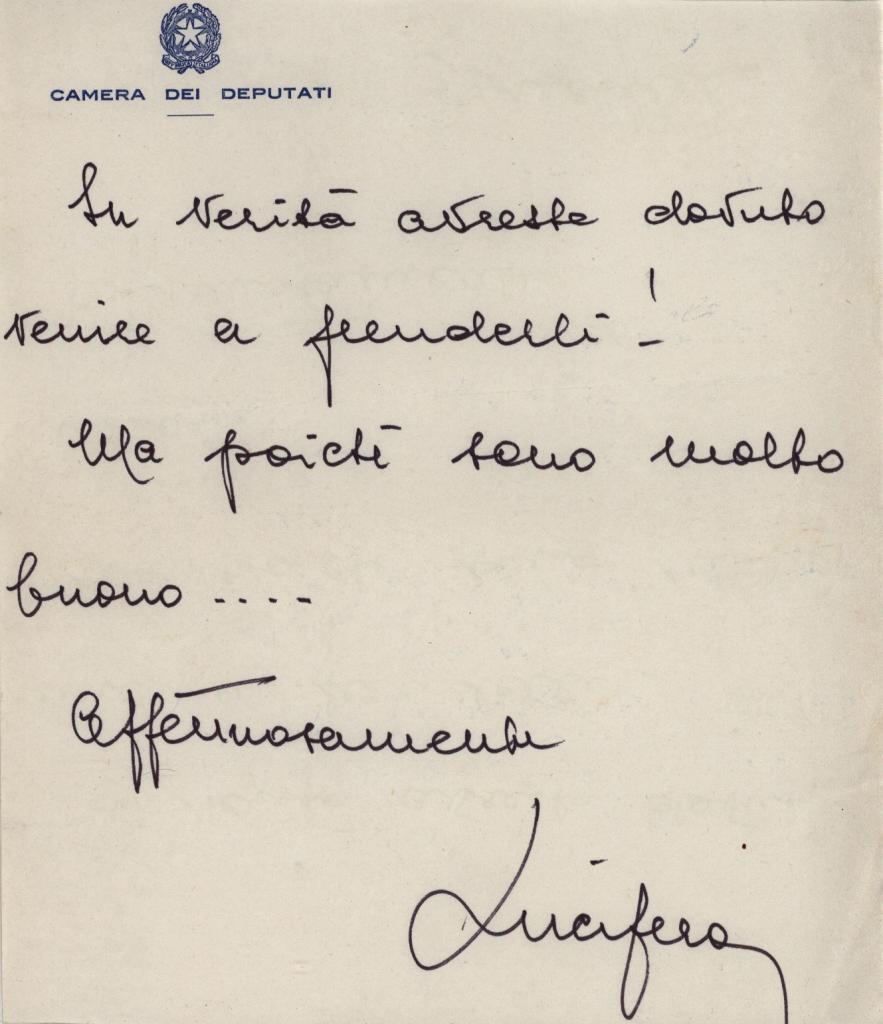 CAMERA DEI DEPUTATI
In verità avreste dovuto
venire a prenderli!
Ma poiché sono molto
buono ....
Affettuosamente
Lucifero